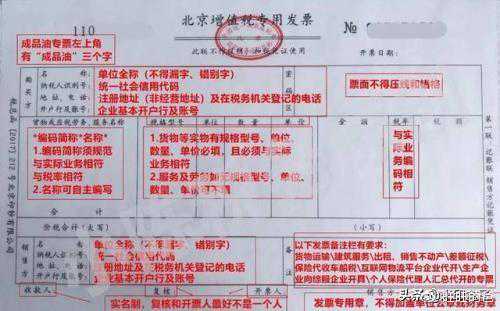 110
北京增值税专用发票
№
此联不得
开票日期：
成品油专票左上角
有“成品油”三个字
购买方
名称：
纳税人识别号：
地址、电话：
开户行及账号：
单位全称（不得漏字、错别字）
统一社会信用代码
注册地址（非经营地址）及在税务机关登记的电话
企业基本开户行及账号
密码区
票面不得压线和错格
货物或应税劳务、服务名称
规格型号
单位
数量
单价
金额
税率
税额
*编码简称*名称*
1.编码简称须规范
与实际业务相符
与税率相符
2.名称可自主编写
1.货物等实物有规格型号、单位、
数量、单价必填，且必须与实际
业务相符
2.服务及劳务如无规格型号、单位、
数量、单价可不填
与实际业务编码相符
价税合计（大写）
（小写）
销售方
名称：
纳税人识别号：
地址、电话：
开户行及账号：
单位全称（不得漏字、错别字）
统一社会信用代码
注册地址及在税务机关登记的电话
企业基本开户行及账号
以下发票备注栏有要求：
货物运输\建筑服务\出租、销售不动产\差额征税\
保险代收车船税\互联网物流平台企业代开\生产企
业向综服企业开具\个人保险代理人汇总代开的专票
收款人：
复核：
开票人：
实名制，复核和开票人最好不是一个人
发票专用章，不得加盖单位公章或财务章
头条 @旺旺创客